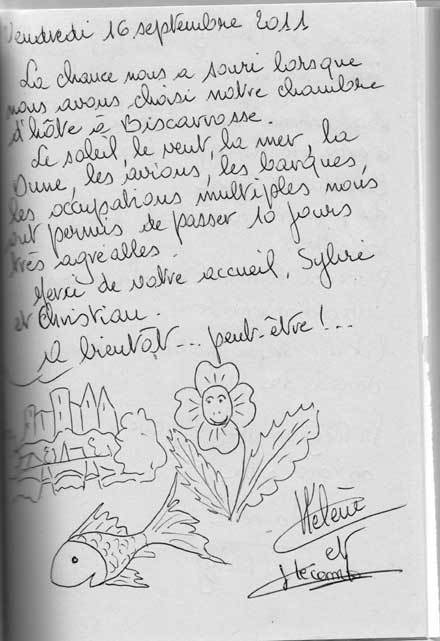 Vendredi 16 septembre 2011
La chance nous a souri lorsque
nous avons choisi notre chambre
d'hôte à Biscarrosse.
Le soleil, le vent, la mer, la
Dune, les avions, les barques,
les occupations multiples nous
ont permis de passer 10 jours
très agréables.
Merci de votre accueil, Sylvie
et Christian.
A bientôt... peut-être!...
Hélène
et